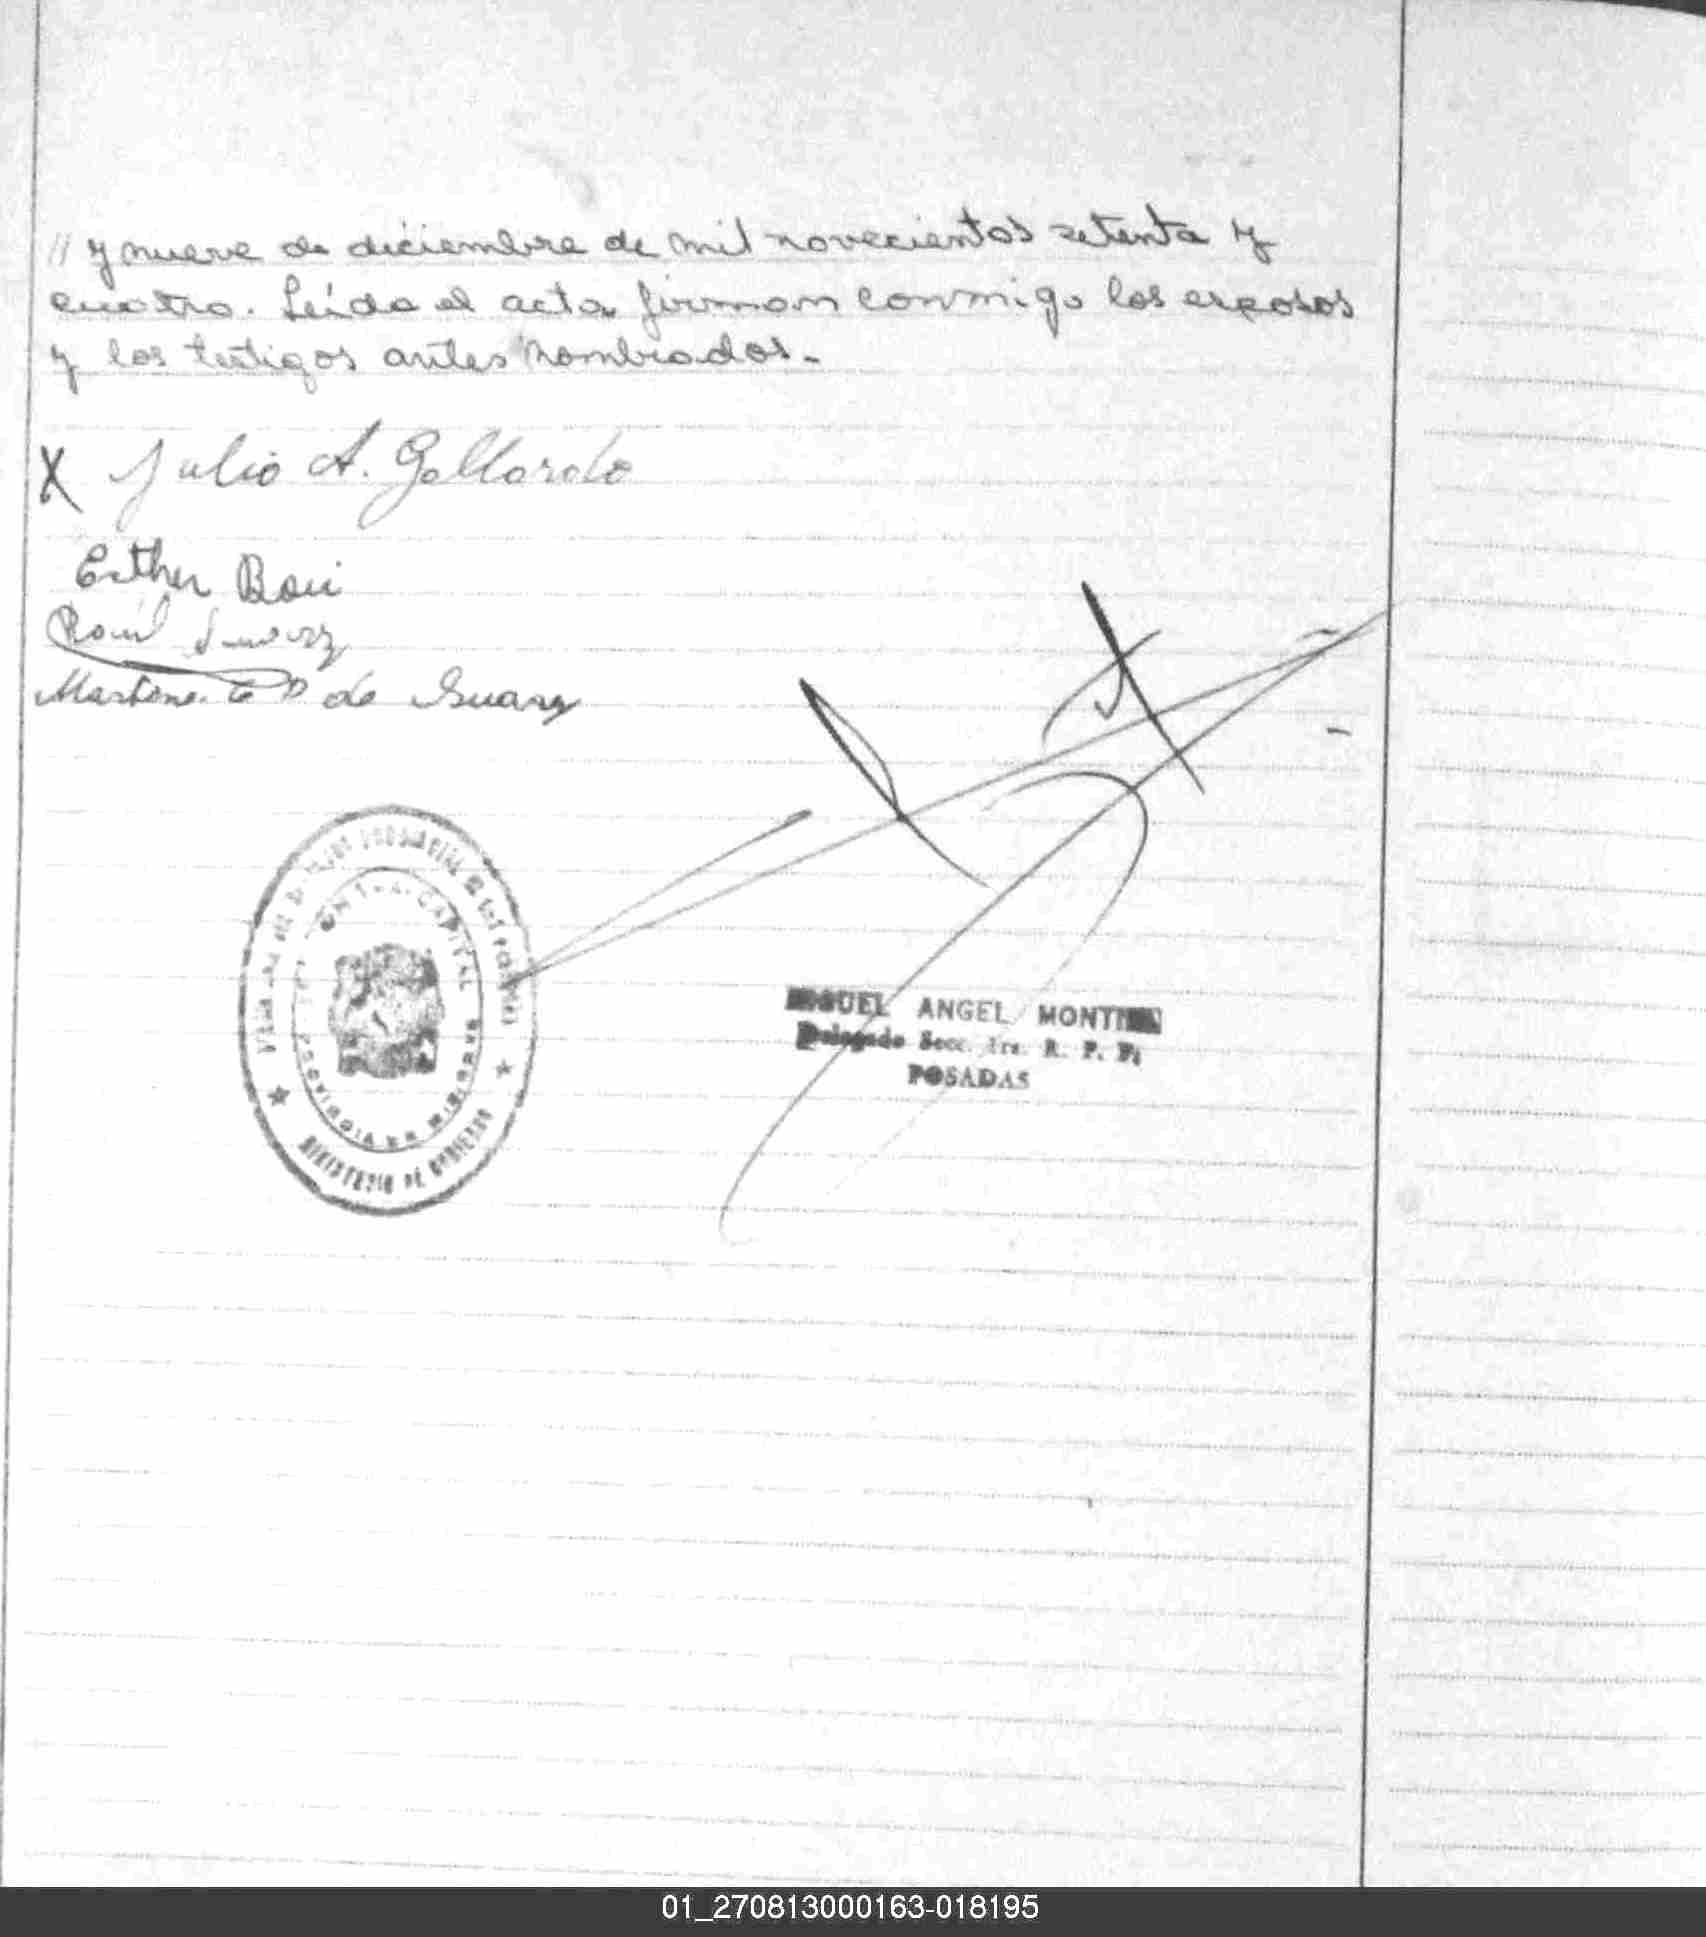 // y nueve de diciembre de mil novecientos setenta y
cuatro. Leída el acta firman conmigo los esposos
y los testigos antes nombrados.-
X Julio A. Gallardo
Esther
Raúl
de Suarez
CAPITAL
PROVINCIA DE MISIONES
MINISTERIO DE GOBIERNO
MIGUEL ANGEL
Delegado Secc. 1ra. R. P. P.
POSADAS
01_270813000163-018195